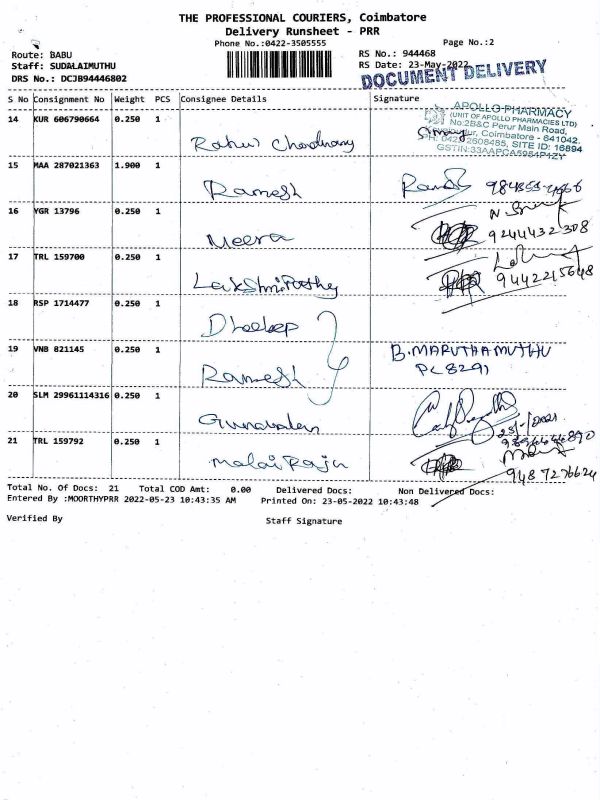 THE PROFESSIONAL COURIERS, Coimbatore
Delivery Runsheet - PRR
Phone No.:0422-3505555 Page No.:2
Route: BABU RS No.: 944468
Staff: SUDALAIMUTHU RS Date: 23-May-2022
DRS No.: DCJB94446802
DOCUMENT DELIVERY
S No Consignment No Weight PCS Consignee Details Signature
APOLLO PHARMACY
(UNIT OF APOLLO PHARMACIES LTD)
No:2B&C Perur Main Road,
Coimbatore - 641042.
PH: 0422 2608485, SITE ID: 16894
GSTIN:33AAPCA5954P1ZY
14 KUR 606790664 0.250 1
15 MAA 287021363 1.900 1
Ramesh
16 YGR 13796 0.250 1
Meera 9244432308
17 TRL 159700 0.250 1
9442215648
18 RSP 1714477 0.250 1
Dheelep
19 VNB 821145 0.250 1 B.MARUTHAMUTHU
Ramesh PC 8291
20 SLM 29961114316 0.250 1
21 TRL 159792 0.250 1
malai Raju 9487276624
Total No. Of Docs: 21 Total COD Amt: 0.00 Delivered Docs: Non Delivered Docs:
Entered By :MOORTHYPRR 2022-05-23 10:43:35 AM Printed On: 23-05-2022 10:43:48
Verified By Staff Signature